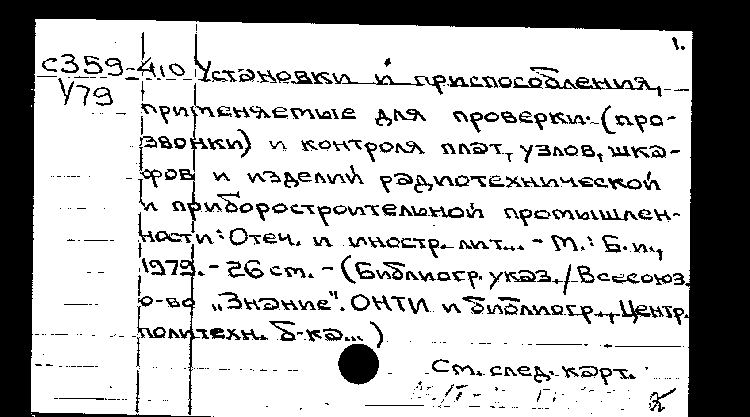 1.
с359-410 Установки и приспособления,
У79 применяемые для проверки (про-
звонки) и контроля плат, узлов, шка-
фов и изделий радиотехнической
и приборостроительной промышлен-
ности: Отеч. и иностр. лит... - М.: Б.и.,
1979. - 26 ст. - (Библиогр. указ./Всесоюз.
о-во „Знание". ОНТИ и библиогр., Центр.
политехн. б-ка...)
См. след. карт.